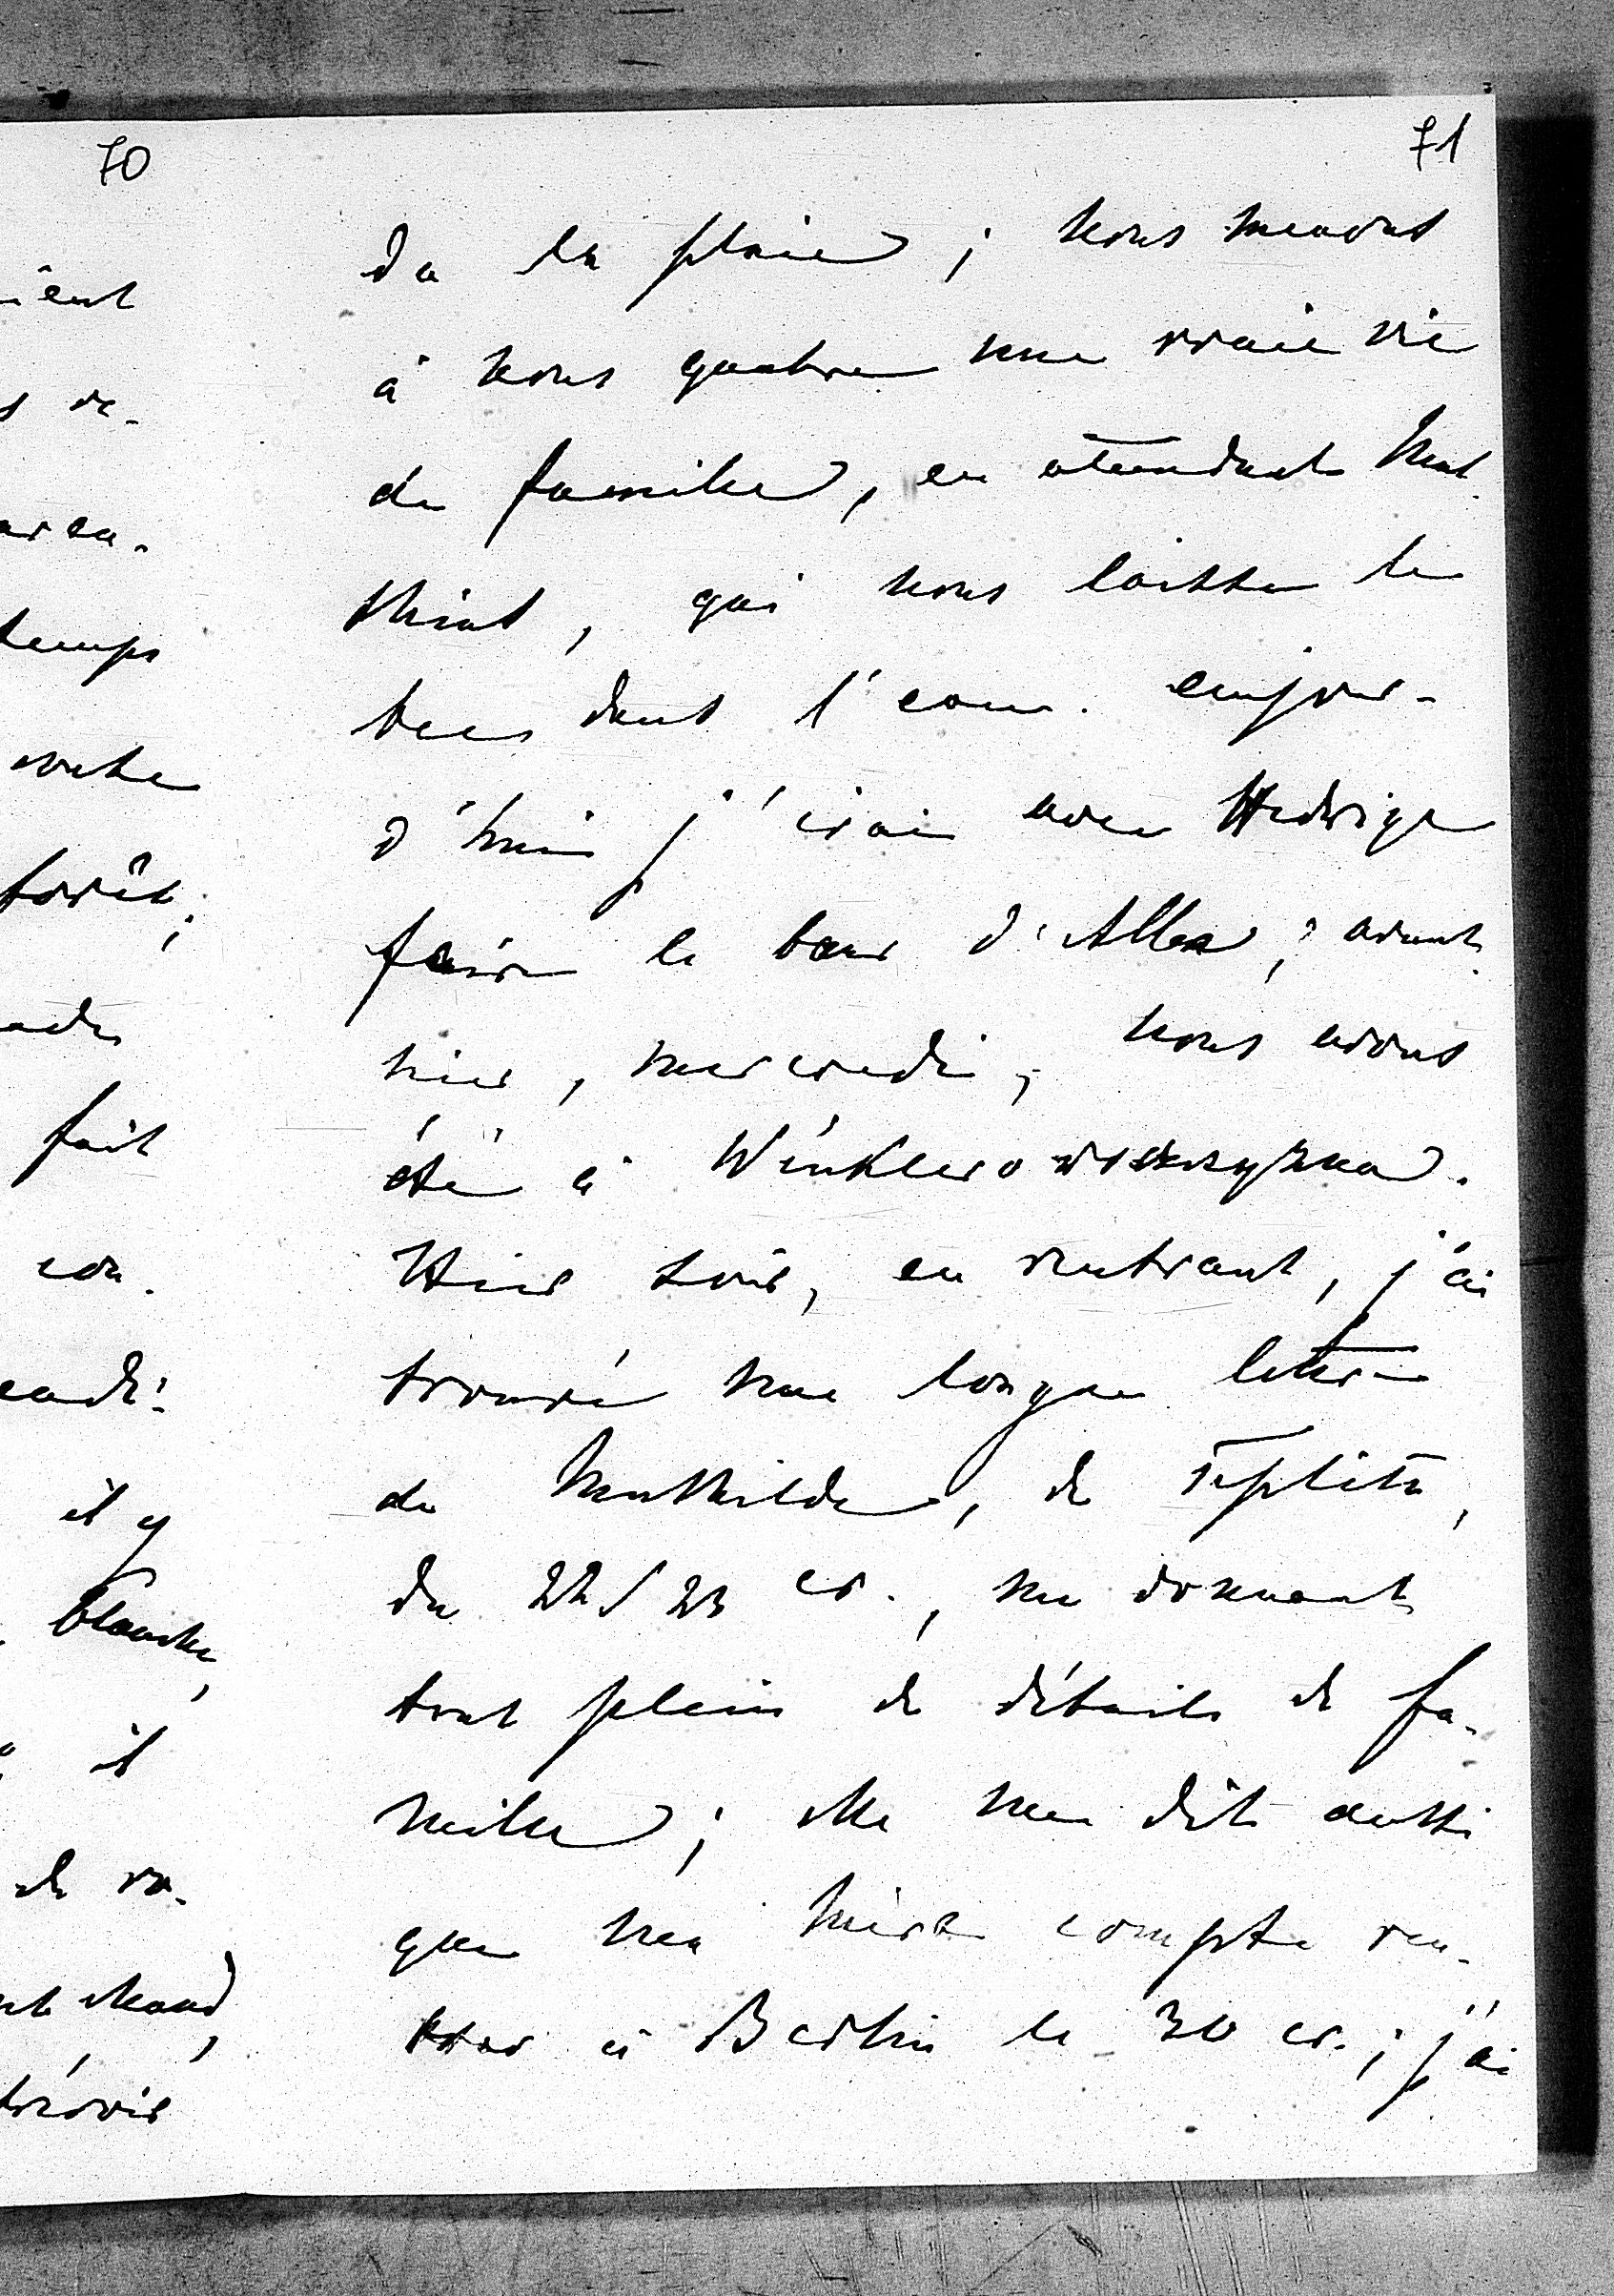 70
ient
s re-
temps
forêt;
fait
con-
il y
blanche,
il
de vo-
chaud,
71
de la pluie; nous menons
à nous quatre une vraie vie
de famille, en attendant Mat-
thias, qui nous laisse le
bec dans l'eau. Aujour-
d'hui j'irai avec Hedwige
faire le tour d'Allex; avant-
hier, mercredi, nous avons
été à Winklerowszczyzna.
Hier soir, en rentrant, j'ai
trouvé une longue lettre
de Mathilde, de Teplitz,
du 22/23 cr., me donnant
tout plein de détails de fa-
mille; elle me dit aussi
que ma mère compte ren-
trer à Berlin le 30 cr.; j'ai